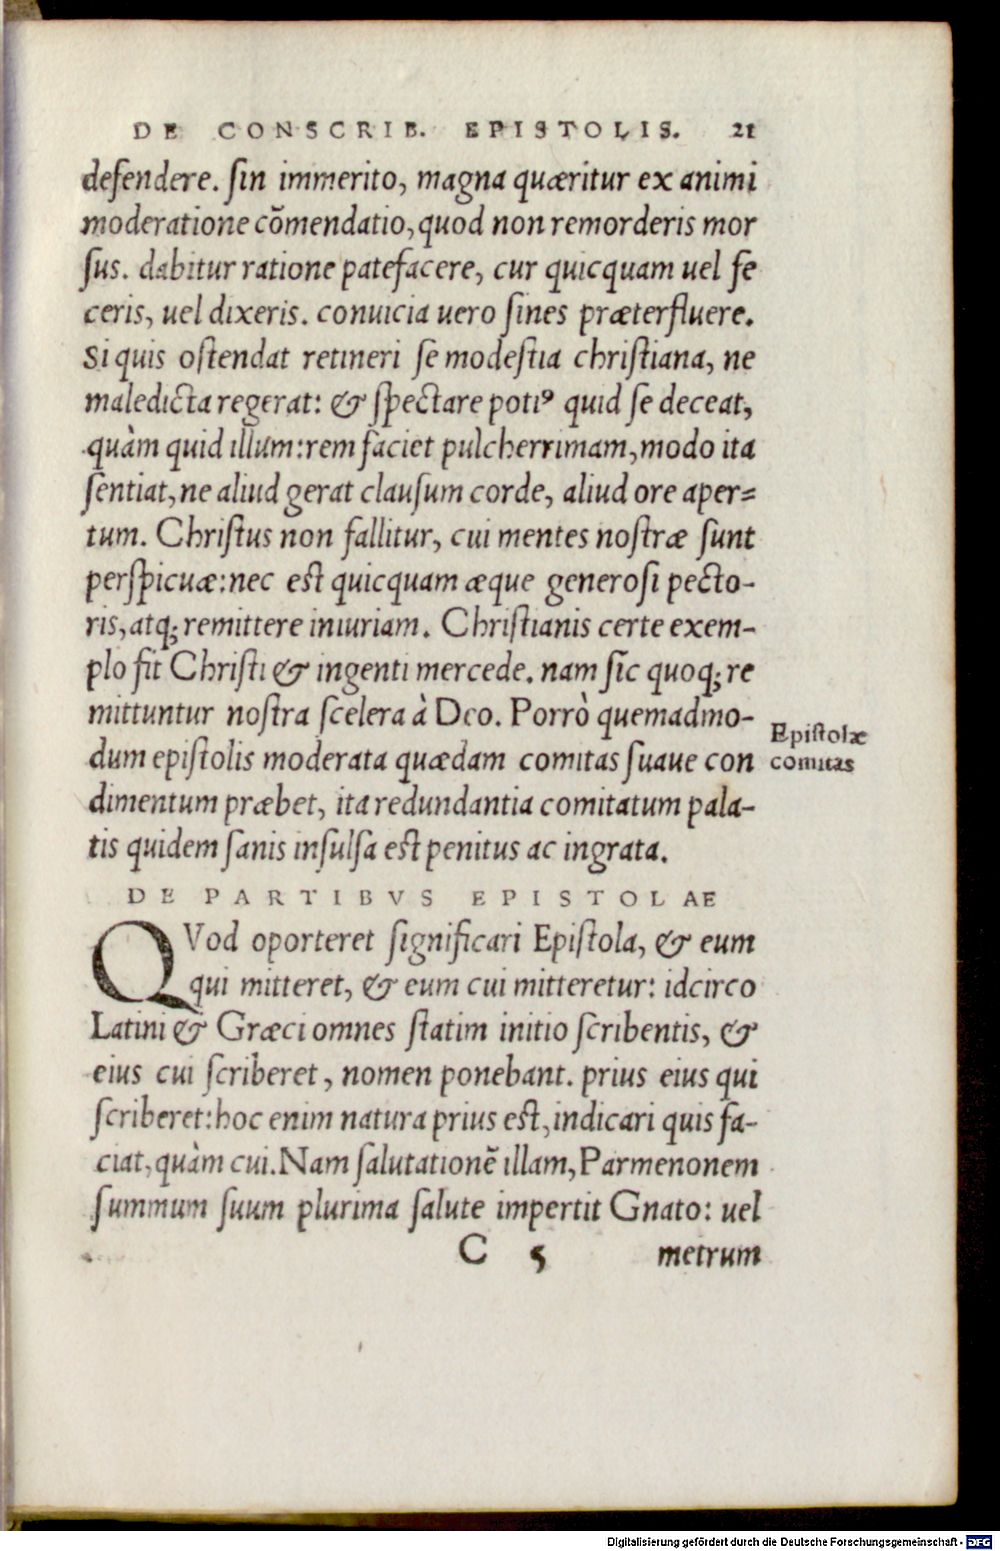 DE CONSCRIB. EPISTOLIS. 21
defendere. ſin immerito, magna quæritur ex animi
moderatione cōmendatio, quod non remorderis mor
ſus. dabitur ratione patefacere, cur quicquam uel fe
ceris, uel dixeris. conuicia uero ſines præterfluere.
Si quis oſtendat retineri ſe modeſtia chriſtiana, ne
maledicta regerat: & ſpectare potiꝰ quid ſe deceat,
quàm quid illum: rem faciet pulcherrimam, modo ita
ſentiat, ne aliud gerat clauſum corde, aliud ore aper=
tum. Chriſtus non fallitur, cui mentes noſtræ ſunt
perſpicuæ: nec eſt quicquam æque generoſi pecto-
ris, atq; remittere iniuriam. Chriſtianis certe exem-
plo fit Chriſti & ingenti mercede. nam ſic quoq; re
mittuntur noſtra ſcelera à Deo. Porrò quemadmo-
dum epiſtolis moderata quædam comitas ſuaue con
Epiſtolæ
comitas
dimentum præbet, ita redundantia comitatum pala-
tis quidem ſanis inſulſa eſt penitus ac ingrata.
DE PARTIBVS EPISTOLAE
QVod oporteret ſignificari Epiſtola, & eum
qui mitteret, & eum cui mitteretur: idcirco
Latini & Græci omnes ſtatim initio ſcribentis, &
eius cui ſcriberet, nomen ponebant. prius eius qui
ſcriberet: hoc enim natura prius eſt, indicari quis fa-
ciat, quàm cui. Nam ſalutationē illam, Parmenonem
ſummum ſuum plurima ſalute impertit Gnato: uel
C 5 metrum
Digitalisierung gefördert durch die Deutsche Forschungsgemeinschaft - DFG